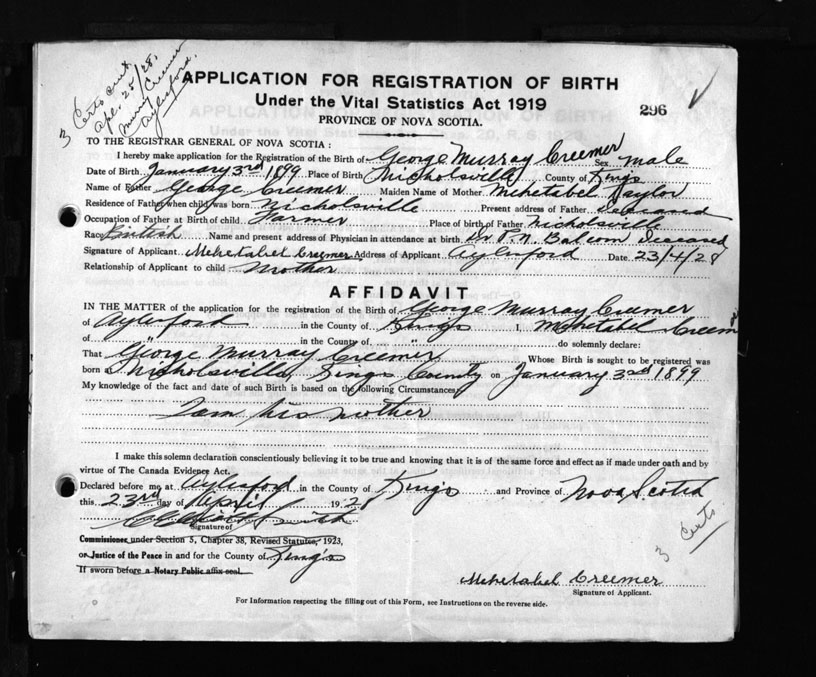 3 Certs sent
Apl. 25/28.
Murray Creemer
Aylesford.
APPLICATION FOR REGISTRATION OF BIRTH
Under the Vital Statistics Act 1919
PROVINCE OF NOVA SCOTIA.
296
TO THE REGISTRAR GENERAL OF NOVA SCOTIA:
I hereby make application for the Registration of the Birth of George Murray Creemer Sex male
Date of Birth January 3rd 1899 Place of Birth Nicholsville County of Kings
Name of Father George Creemer Maiden Name of Mother Mehetabel Taylor
Residence of Father when child was born Nicholsville Present address of Father Deceased
Occupation of Father at Birth of child Farmer Place of birth of Father Nicholsville
Race British Name and present address of Physician in attendance at birth Dr P. N. Balcom Deceased
Signature of Applicant Mehetabel Creemer Address of Applicant Aylesford Date 23/4/28
Relationship of Applicant to child Mother
AFFIDAVIT
IN THE MATTER of the application for the registration of the Birth of George Murray Creemer
of Aylesford in the County of Kings I, Mehetabel Creemer
of " in the County of " do solemnly declare:
That George Murray Creemer Whose Birth is sought to be registered was
born at Nicholsville, Kings County on January 3rd 1899
My knowledge of the fact and date of such Birth is based on the following Circumstances,
I am his mother
I make this solemn declaration conscientiously believing it to be true and knowing that it is of the same force and effect as if made under oath and by
virtue of The Canada Evidence Act.
Declared before me at Aylesford in the County of Kings and Province of Nova Scotia
this 23rd day of April 1928
Signature of
Commissioner under Section 5, Chapter 38, Revised Statutes, 1923,
or Justice of the Peace in and for the County of Kings
If sworn before a Notary Public affix seal.
3 Certs
Mehetabel Creemer
Signature of Applicant.
For Information respecting the filling out of this Form, see Instructions on the reverse side.